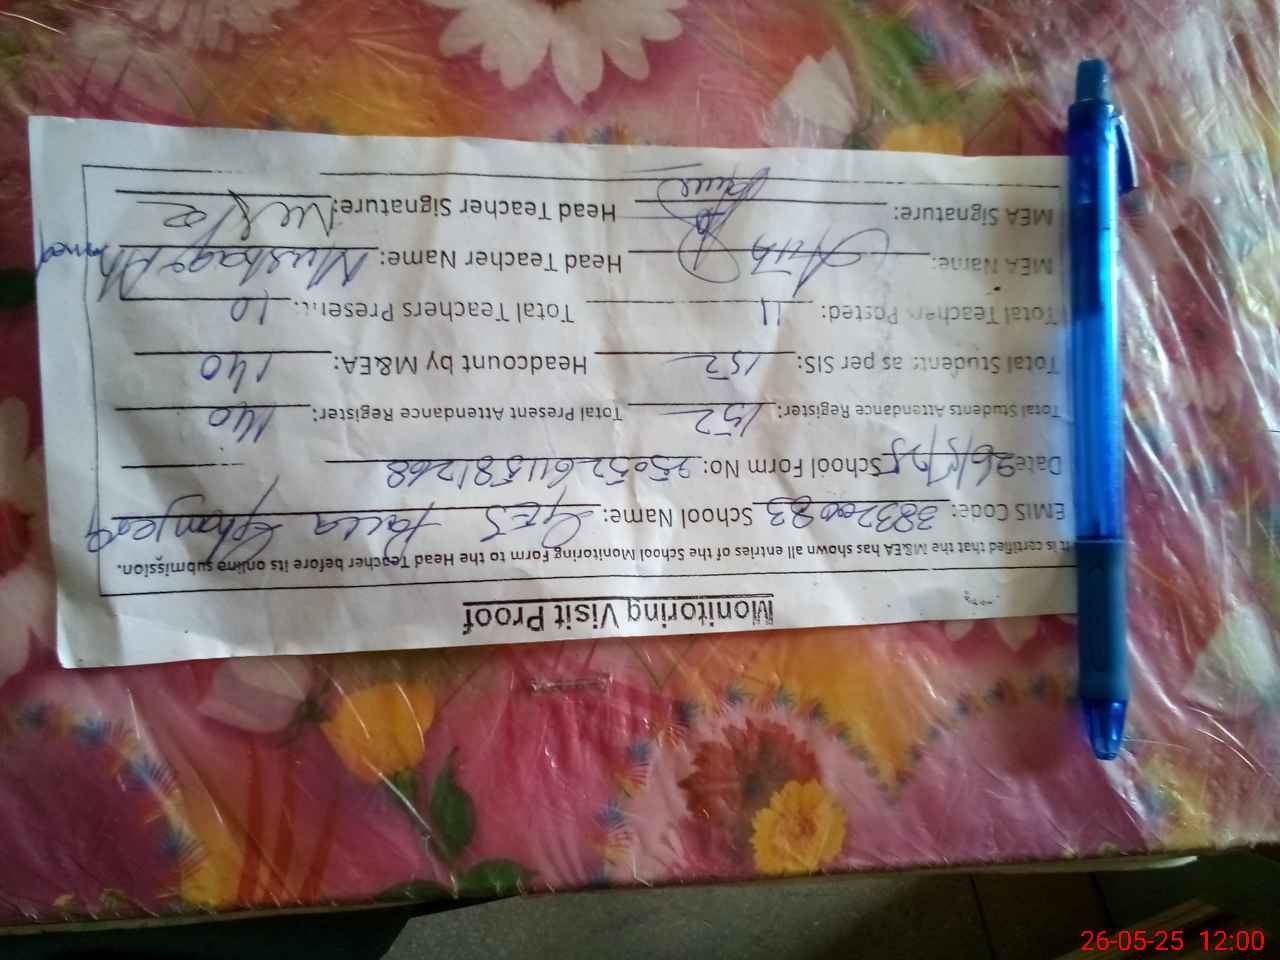 Monitoring Visit Proof
It is certified that the M&EA has shown all entries of the School Monitoring Form to the Head Teacher before its online submission.
EMIS Code: 38320083 School Name: GES
Date: 26/5/25 School Form No: 25052611581268
Total Students Attendance Register: 152 Total Present Attendant Register: 140
Total Students as per SIS: 152 Headcount by M&EA: 140
Total Teachers Posted: 11 Total Teachers Present: 10
MEA Name: Head Teacher Name: Mushtaq Ahmed
MEA Signature: Head Teacher Signature:
26-05-25 12:00